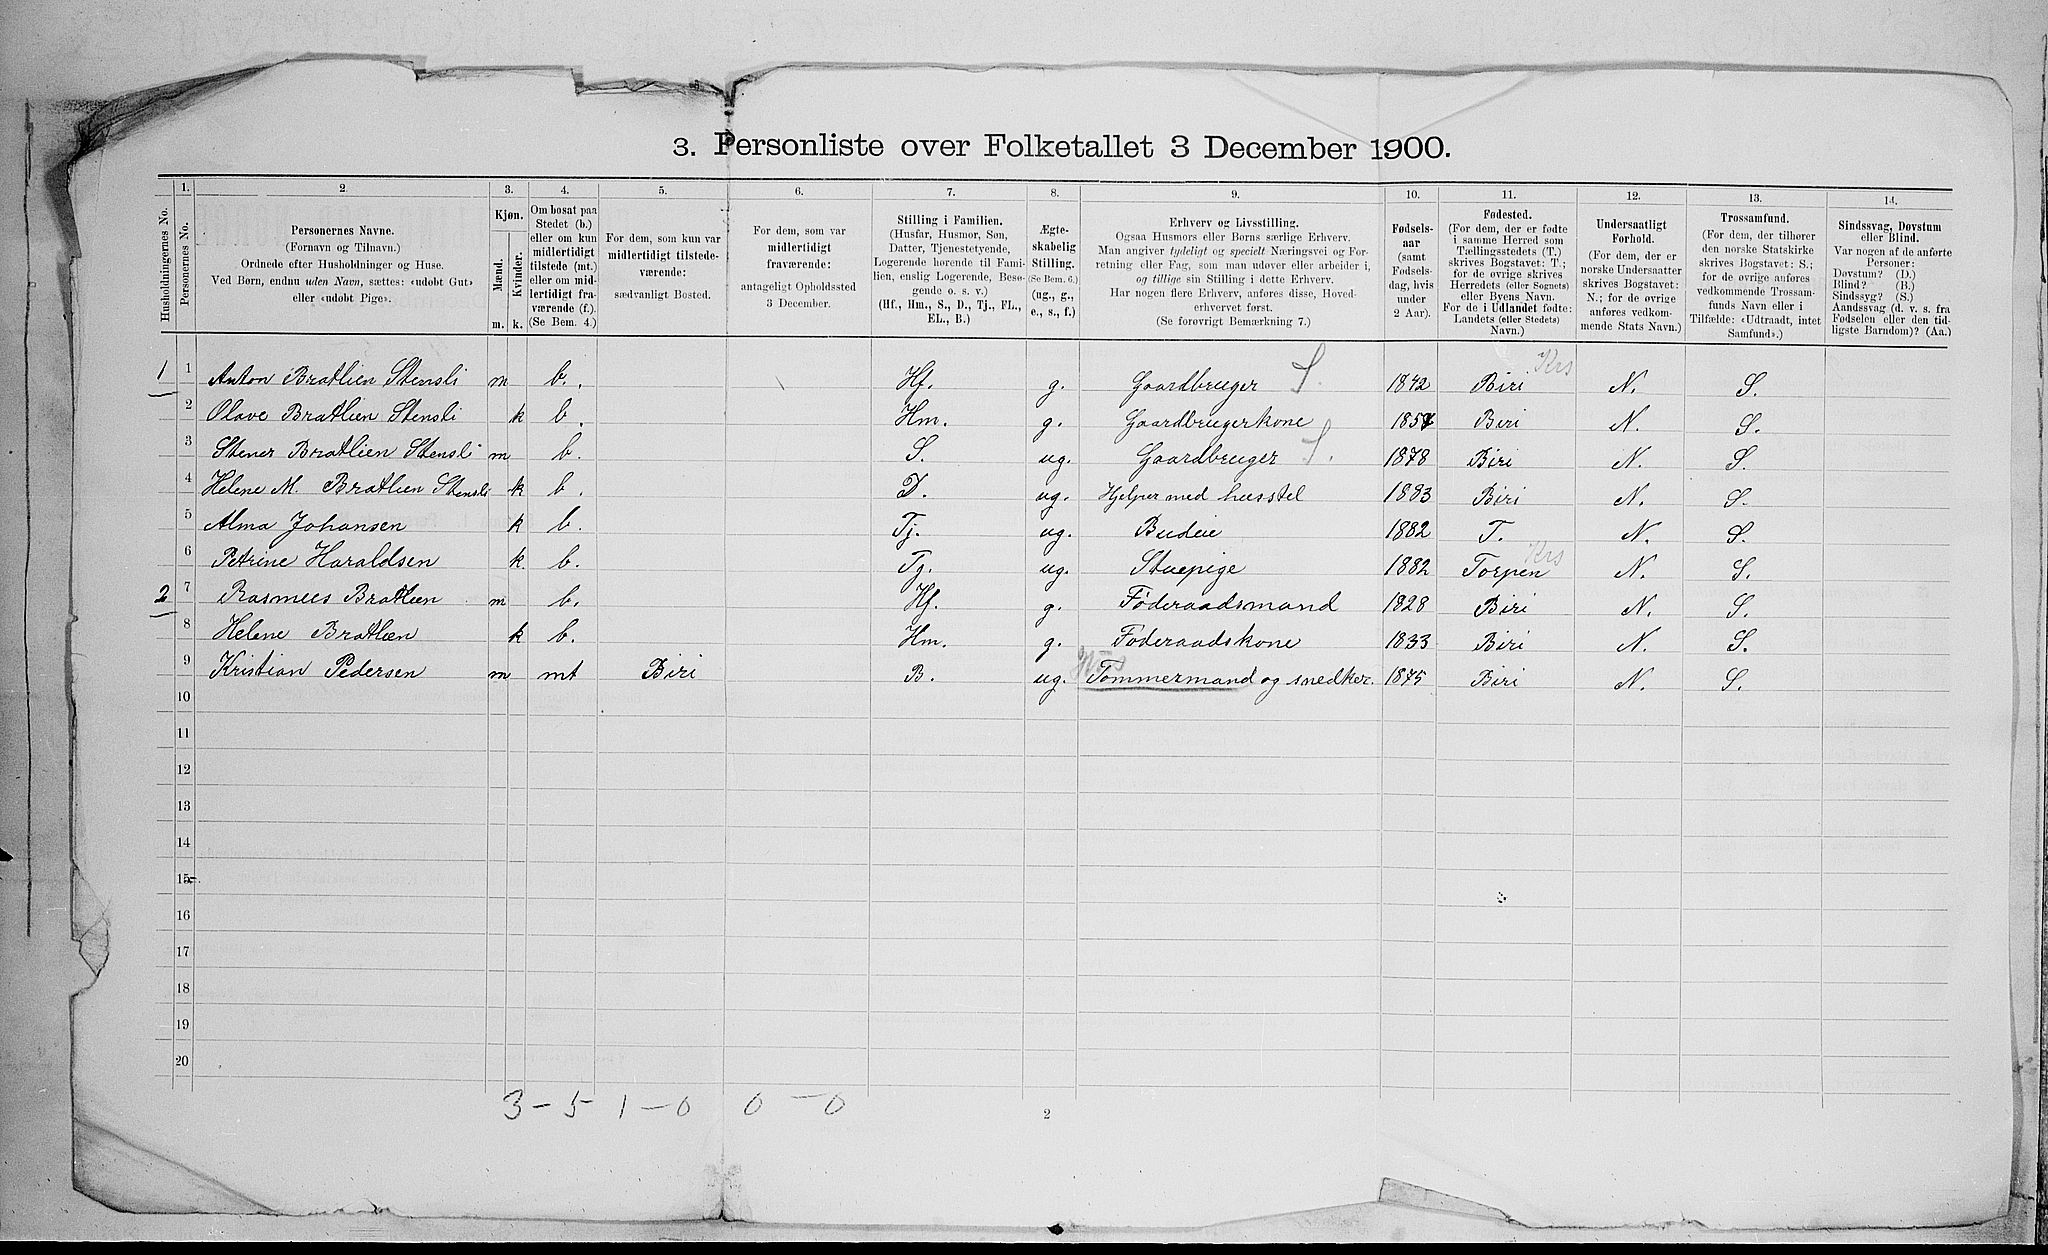 3. Personliste over Folketallet 3 December 1900.
1. 2. 3. 4. 5. 6. 7. 8. 9. 10. 11. 12. 13. 14.
Husholdningernes No.
Personernes No.
Personernes Navne.
(Fornavn og Tilnavn.)
Ordnede efter Husholdninger og Huse.
Ved Børn, endnu uden Navn, sættes: «udobt Gut»
eller «udobt Pige».
Kjøn.
Mænd.
Kvinder.
m. k.
Om bosat paa
Stedet (b.)
eller om kun
midlertidigt
tilstede (mt.)
eller om mid-
lertidigt fra-
værende (f.).
(Se Bem. 4.)
For dem, som kun var
midlertidigt tilstede-
værende:
sædvanligt Bosted.
For dem, som var
midlertidigt
fraværende:
antageligt Opholdssted
3 December.
Stilling i Familien.
(Husfar, Husmor, Søn,
Datter, Tjenestetyende,
Logerende hørende til Fami-
lien, enslig Logerende, Besø-
gende o. s. v.)
(Hf., Hm., S., D., Tj., FL.,
EL., B.)
Ægte-
skabelig
Stilling.
(Se Bem. 6.)
(ug., g.,
e., s., f.)
Erhverv og Livsstilling.
Ogsaa Husmors eller Børns særlige Erhverv.
Man angiver tydeligt og specielt Næringsvei og For-
retning eller Fag, som man udøver eller arbeider i,
og tillige sin Stilling i dette Erhverv.
Har nogen flere Erhverv, anføres disse, Hoved-
erhvervet først.
(Se forøvrigt Bemærkning 7.)
Fødsels-
aar
(samt
Fødsels-
dag, hvis
under
2 Aar).
Fødested.
(For dem, der er fødte
i samme Herred som
Tællingsstedets (T.)
skrives Bogstavet: T.;
for de øvrige skrives
Herredets (eller Sognets)
eller Byens Navn.
For de i Udlandet fødte:
Landets (eller Stedets)
Navn.)
Undersaatligt
Forhold.
(For dem, der er
norske Undersaatter
skrives Bogstavet:
N.; for de øvrige
anføres vedkom-
mende Stats Navn.)
Trossamfund.
(For dem, der tilhører
den norske Statskirke
skrives Bogstavet: S.;
for de øvrige anføres
vedkommende Trossam-
funds Navn eller i
Tilfælde: «Udtraadt, intet
Samfund».)
Sindssvag, Døvstum
eller Blind.
Var nogen af de anførte
Personer:
Døvstum? (D.)
Blind? (B.)
Sindssyg? (S.)
Aandssvag (d. v. s. fra
Fødselen eller den tid-
ligste Barndom)? (Aa.)
1 1 Anton Bratlien Stensli m b. Hf. g. Gaardbruger S. 1842 Biri Krs N. S.
2 Olave Bratlien Stensli k b. Hm. g. Gaardbrugerkone Biri N. S.
3 Stener Bratlien Stensli m b. S. ug. Gaardbruger S. 1878 Biri N. S.
4 Helene M. Bratlien Stensli k b. D. ug. Hjelper med husstel 1883 Biri N. S.
5 Alma Johansen k b. Tj. ug. Budeie 1882 T. N. S.
6 Petrine Haraldsen k b. Tj. ug. Stuepige 1882 Torpen Krs N. S.
2 7 Rasmus Bratlien m b. Hf. g. Føderaadsmand 1828 Biri N. S.
8 Helene Bratlien k b. Hm. g. Føderaadskone 1833 Biri N. S.
9 Kristian Pedersen m mt Biri B. ug. Tømmermand og snedker. 1875 Biri N. S.
10
11
12
13
14
15
16
17
18
19
20
3 - 5 1 - 0 0 - 0
2